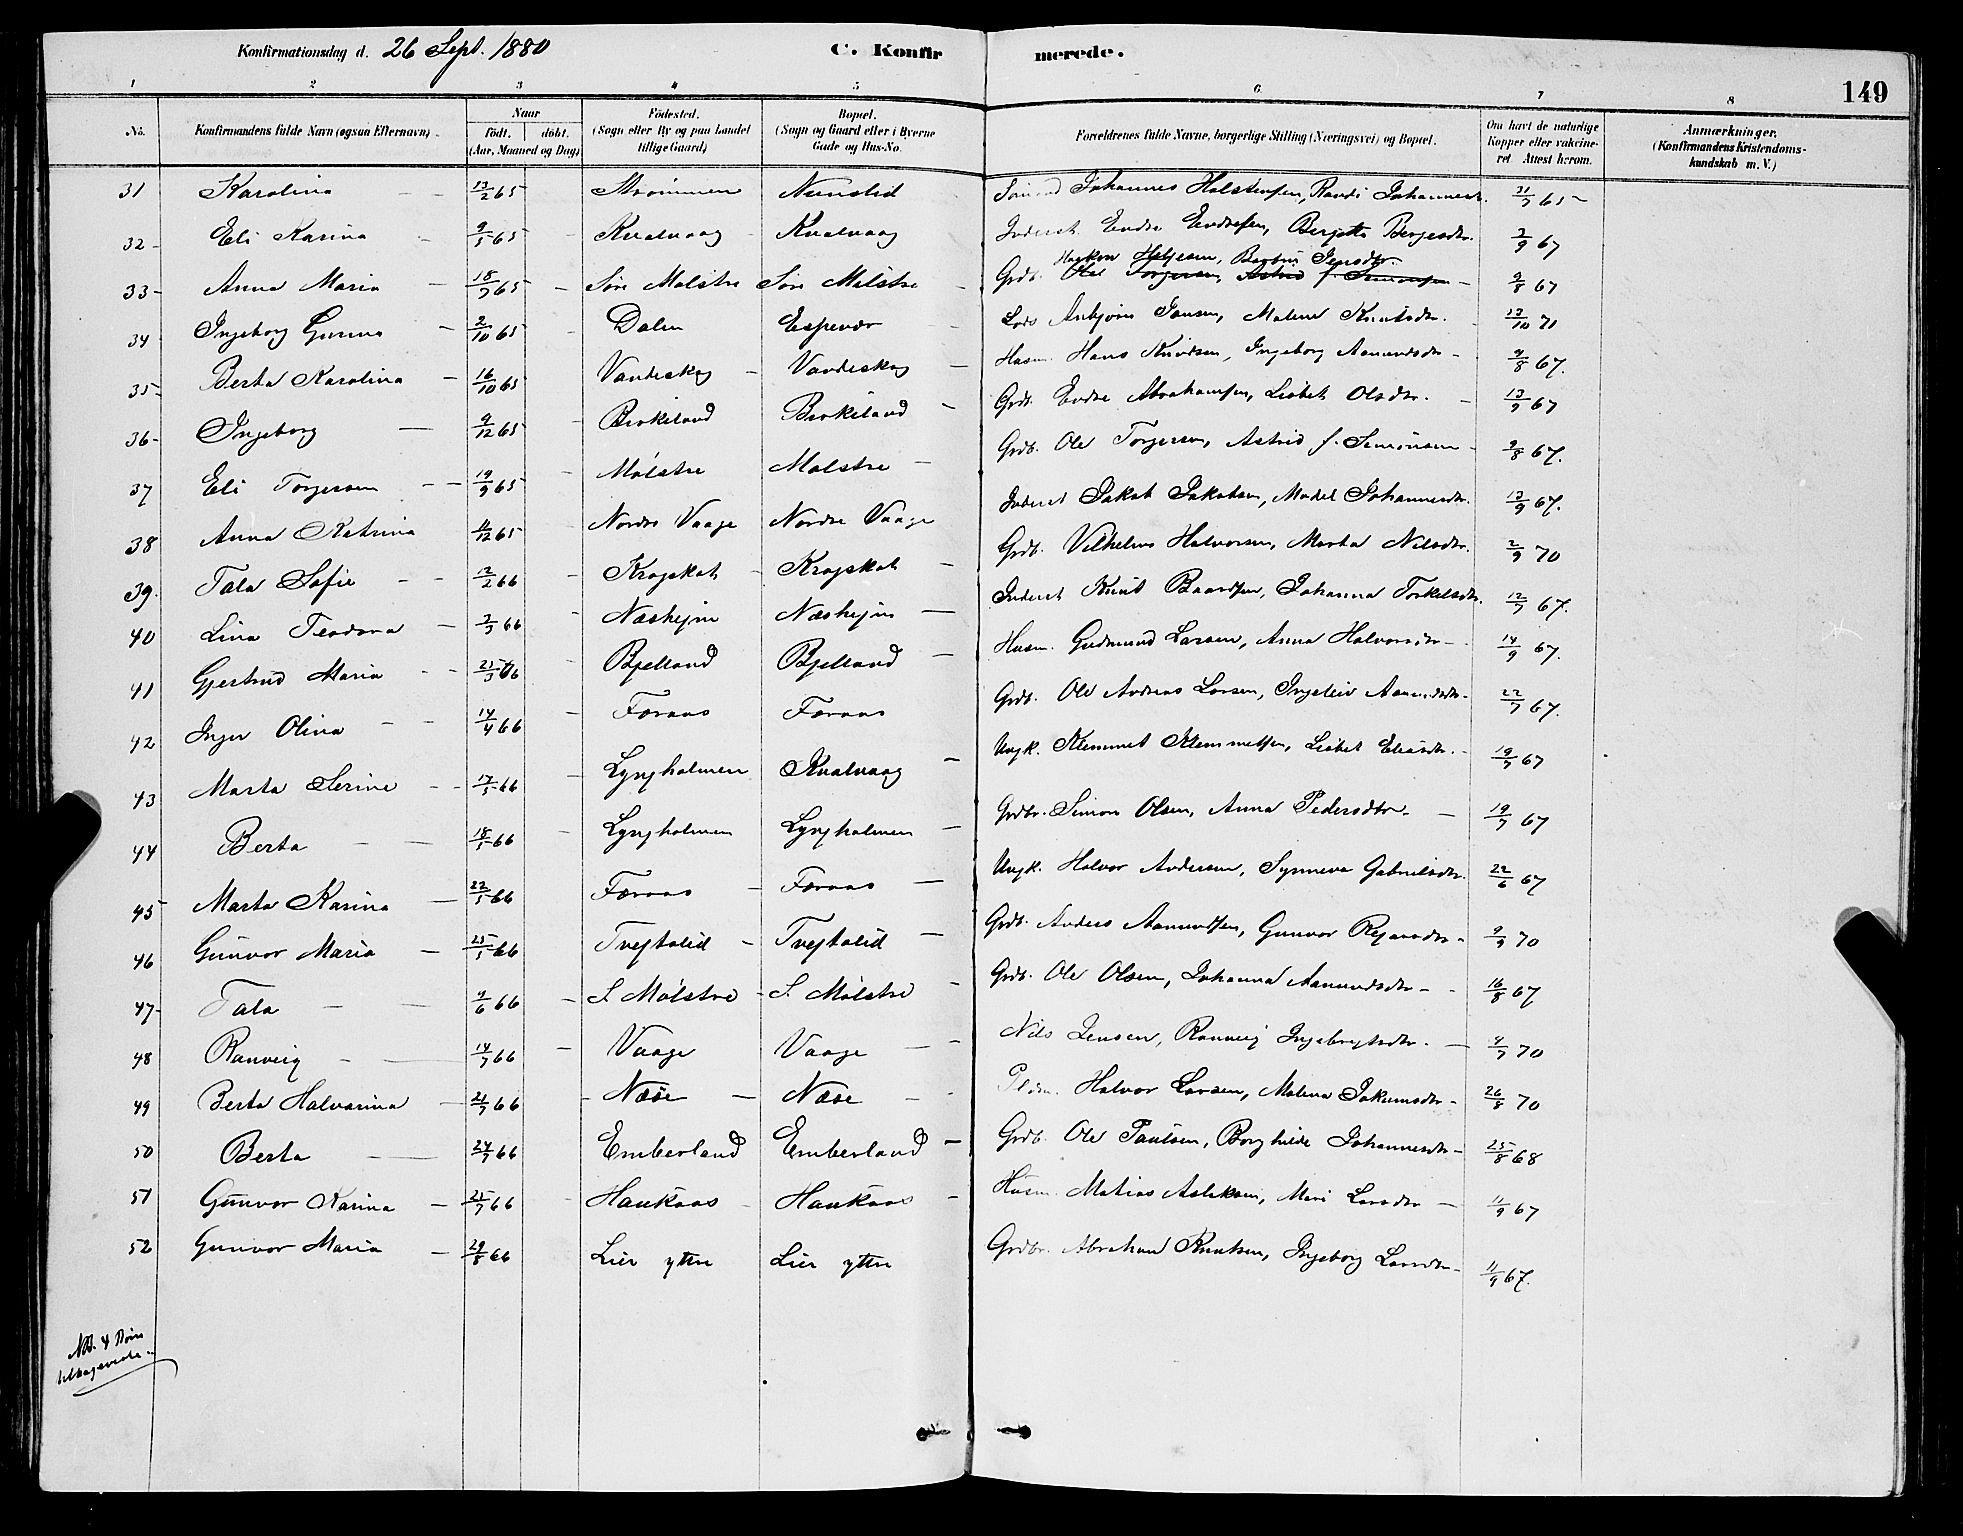 Konfirmationsdag d. 26 Sept. 1880 C. Konfir merede. 149
1 2 3 4 5 6 7 8
No. Konfirmandens fulde Navn (ogsaa Efternavn). Naar födt. döbt. (Aar, Maaned og Dag) Födested. (Sogn eller By og paa Landet tillige Gaard) Bopæl. (Sogn og Gaard eller i Byerne Gade og Hus-No. Forældrenes fulde Navne, borgerlige Stilling (Næringsvei) og Bopæl. Om havt de naturlige Kopper eller vakcineret. Attest herom. Anmærkninger. (Konfirmandens Kristendomskundskab m. V.)
31 Karolina 13/2 65 Strömmen Nunslid Johannes Halstensen, Randi Johannesdr. 31/7 65
32 Eli Karina 9/5 65 Kvalvaag Kvalvaag Inderst Endre Endresen, Bergette Bergesdtr. 3/9 67
Haakon Helgesen, Barbru Jensdtr.
33 Anna Maria 18/7 65 Söre Mölstre Söre Mölstre Grdb. Ole Torgersen, Astrid f. Simonsen 9/8 67
34 Ingeborg Gurina 2/10 65 Dalen Espevær Lods Anbjörn Jansen, Malene Knutsdtr. 13/10 71
35 Berta Karolina 16/10 65 Vandaskog Vandaskog Husm. Hans Knudsen, Ingeborg Aamundsdtr 9/8 67.
36 Ingeborg 9/12 65 Birkeland Birkeland Grdb. Endre Abrahamsen, Lisbet Olsdtr. 13/9 67
37 Eli Torgersen 19/9 65 Mölstre Mölstre Grdb. Ole Torgersen, Astrid f. Simonsen 9/8 67.
38 Anna Katrina 11/12 65 Nordre Vaage Nordre Vaage Inderst Jakob Jakobsen, Madel Johannesdtr. 13/9 67.
39. Tala Sofie 12/2 66 Kragskot Kragskot Grdb. Vilhelm Halvorsen, Marta Nilsdtr. 2/9 70
40 Lina Teodora 2/3 66 Næshejm Næshejm Inderst Knut Baardsen, Johanna Torkelsdtr. 12/7 67.
41 Gjertrud Maria 21/3 66 Bjelland Bjelland Husm. Gudmund Larsen, Anna Halvorsdtr 14/9 67.
42 Inger Olina 14/4 66 Færaas Færaas Grdb. Ole Andreas Larsen, Ingeleiv Aamundsdtr 22/7 67.
43 Marta Serine 17/5 66 Lyngholmen Kvalvaag Ungk. Klemmet Klemmetsen, Lisbet Eliasdtr. 19/7 67
44 Berta 18/5 66 Lyngholmen Lyngholmen Grdbr. Simon Olsen, Anna Pedersdtr. 19/7 67
45 Marta Karina 22/5 66 Færaas Færaas Ungk. Halvor Andersen, Synneva Gabrielsdtr. 22/6 67
46 Gunvor Maria 25/5 66 Tvejtalid Tvejtalid Grdb. Anders Aamundsen, Gunvor Rejarsdtr 9/9 70
47 Tala 4/6 66 S. Mölstre S. Mölstre Grdb. Ole Olsen, Johanna Aamundsdtr 16/8 67
48 Ranveig 14/7 66 Vaage Vaage Nils Jensen, Ranveig Ingebrigtsdtr. 4/7 70
49 Berta Halvarina 21/7 66 Næse Næse Halvor Larsen, Malena Jokumsdtr 26/8 70
50 Berta 24/7 66 Emberland Emberland Grdb. Ole Paulsen, Borghilde Johannesdtr 25/8 68
51 Gunvor Karina 25/7 66 Haukaas Haukaas Husm. Matias Aslaksen, Mari Larsdtr 11/9 67
52 Gunvor Maria 29/8 66 Lier ytre Lier ytre Grdbr. Abraham Knutsen, Ingeborg Larsdtr 11/9 67.
NB. 4 Börn
tilbageviste.